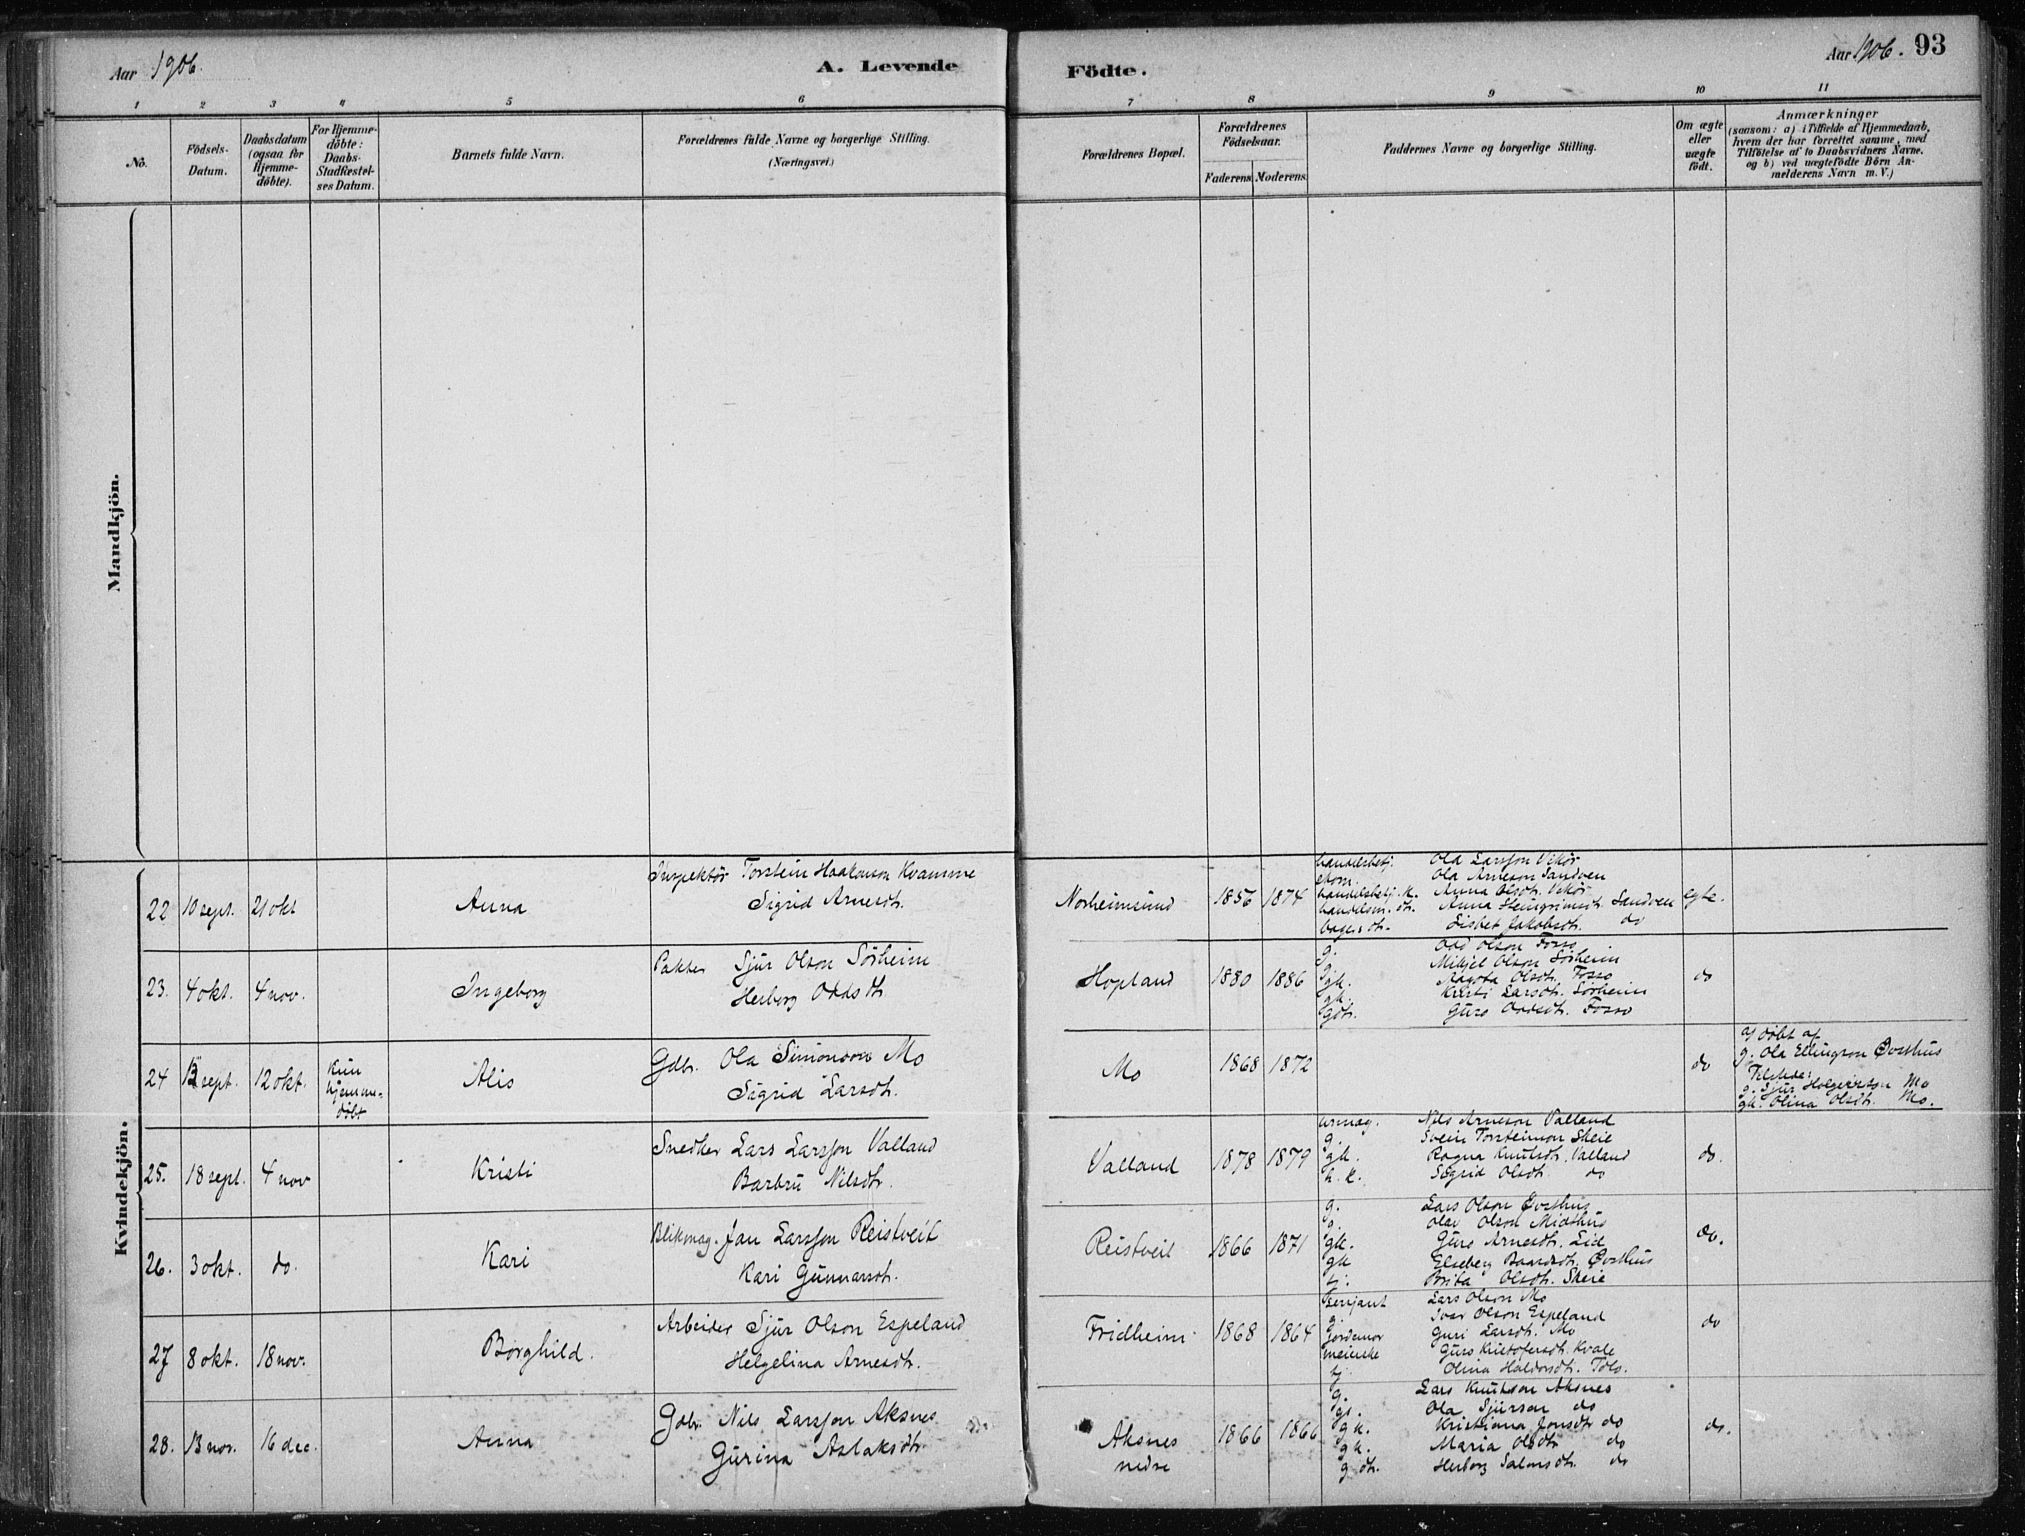 Aar 1906.
A. Levende
Födte.
Aar 1906. 93
1 2 3 4 5 6 7 8 9 10 11
No.
Födsels-
Datum.
Daabsdatum
(ogsaa for
Hjemme-
döbte).
For Hjemme-
döbte:
Daabs-
Stadfæstel-
ses Datum.
Barnets fulde Navn.
Forældrenes fulde Navne og borgerlige Stilling.
(Næringsvei.)
Forældrenes Bopæl.
Forældrenes
Födselsaar.
Faderens. Moderens.
Faddernes Navne og borgerlige Stilling.
Om ægte
eller
uægte
födt.
Anmærkninger
(saasom: a) i Tilfælde af Hjemmedaab,
hvem der har forrettet samme, med
Tilföielse af to Daabsvidners Navne.
og b) ved uægtefödte Börn An-
melderens Navn m. V.)
Mandkjön.
Kvindekjön.
22 10 sept. 21 okt Anna
Inspektör Torstein Haakonson Kvamme
Sigrid Arnesdt.
Norheimsund 1856 1874
handelsbetj. Ola Larsson Vikør
Ola Arneson Sandven
handelsbetj. k. Anna Olsdt. Vikør
handelsm. dt. Anna Steingrimsdt. Sandven
Lisbet Jakobsdt. do
egte.
23. 4 okt. 4 nov. Ingeborg
Pakter Sjur Olson Sørheim
Herborg Oddsdt
Hopland 1880 1886
g. Odd Olson Fosso
Mikjel Olson Sørheim
gk. Olsdt. Fosso
gk. Kristi Larsdt. Sørheim
gdt. Guro Oddsdt. Fosso
do
24 12 sept. 12 okt. Kun
hjemme-
døbt
Alis
Gdbr. Ola Simonson Mo
Sigrid Larsdt.
Mo 1868 1872
do
a) døbt af
g. Ola Ellingson Øvsthus
Tilstede:
g. Sjur Holgeirson Mo
gk. Olina Olsdt. Mo.
25. 18 sept. 4 nov Kristi
Snedker Lars Larsson Valland
Barbru Nilsdt.
Valland 1878 1879
urmag. Nils Arneson Valland
g. Svein Torsteinson Skeie
gk. Ragna Knutsdt. Valland
h. k. Sigrid Olsdt. do
do.
26. 3 okt. do. Kari
Blikmag. Jan Larsson Reistveit
Kari Gunnarsdt.
Reistveit 1866 1871
g. Lars Olson Øvsthus
g. Olav Olson Midthus
gk. Guro Arnesdt. Lid
gk Elseberg Baardsdt. Øvsthus
tj. Brita Olsdt. Skeie
do.
27 8 okt. 18 nov. Borghild.
Arbeider Sjur Olson Espeland
Helgelina Arnesdt.
Fridheim 1868 1864
Serjant Lars Olson Mo
g. Ivar Olson Espeland
Jordemor Guri Larsdt. Mo
meierske Guro Kristofersdt. Kvale
tj Olina Haldorsdt. Tolo.
do
28. 13 nov. 16 dec. Anna
Gdbr. Nils Larsson Aksnes
Gurina Aslaksdt.
Aksnes
nedre
1866 1866
g. Lars Knutson Aksnes
gs. Ola Sjurson do
gk. Kristiana Jonsdt do
gk. Maria Olsdt do
gdt. Herborg Salmsdt. do
do.